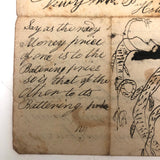 Say as the ready
Money price
of one is to the
Battering price
so is that of the
other to its
Battering price